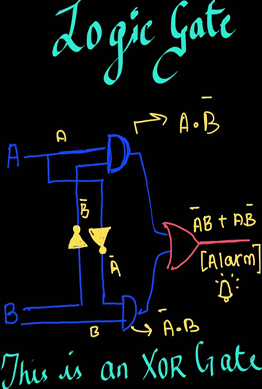 Logic Gate
A
A
A·B̅
B̅
A̅
A̅B + AB̅
[Alarm]
B
B
A̅·B
This is an XOR Gate